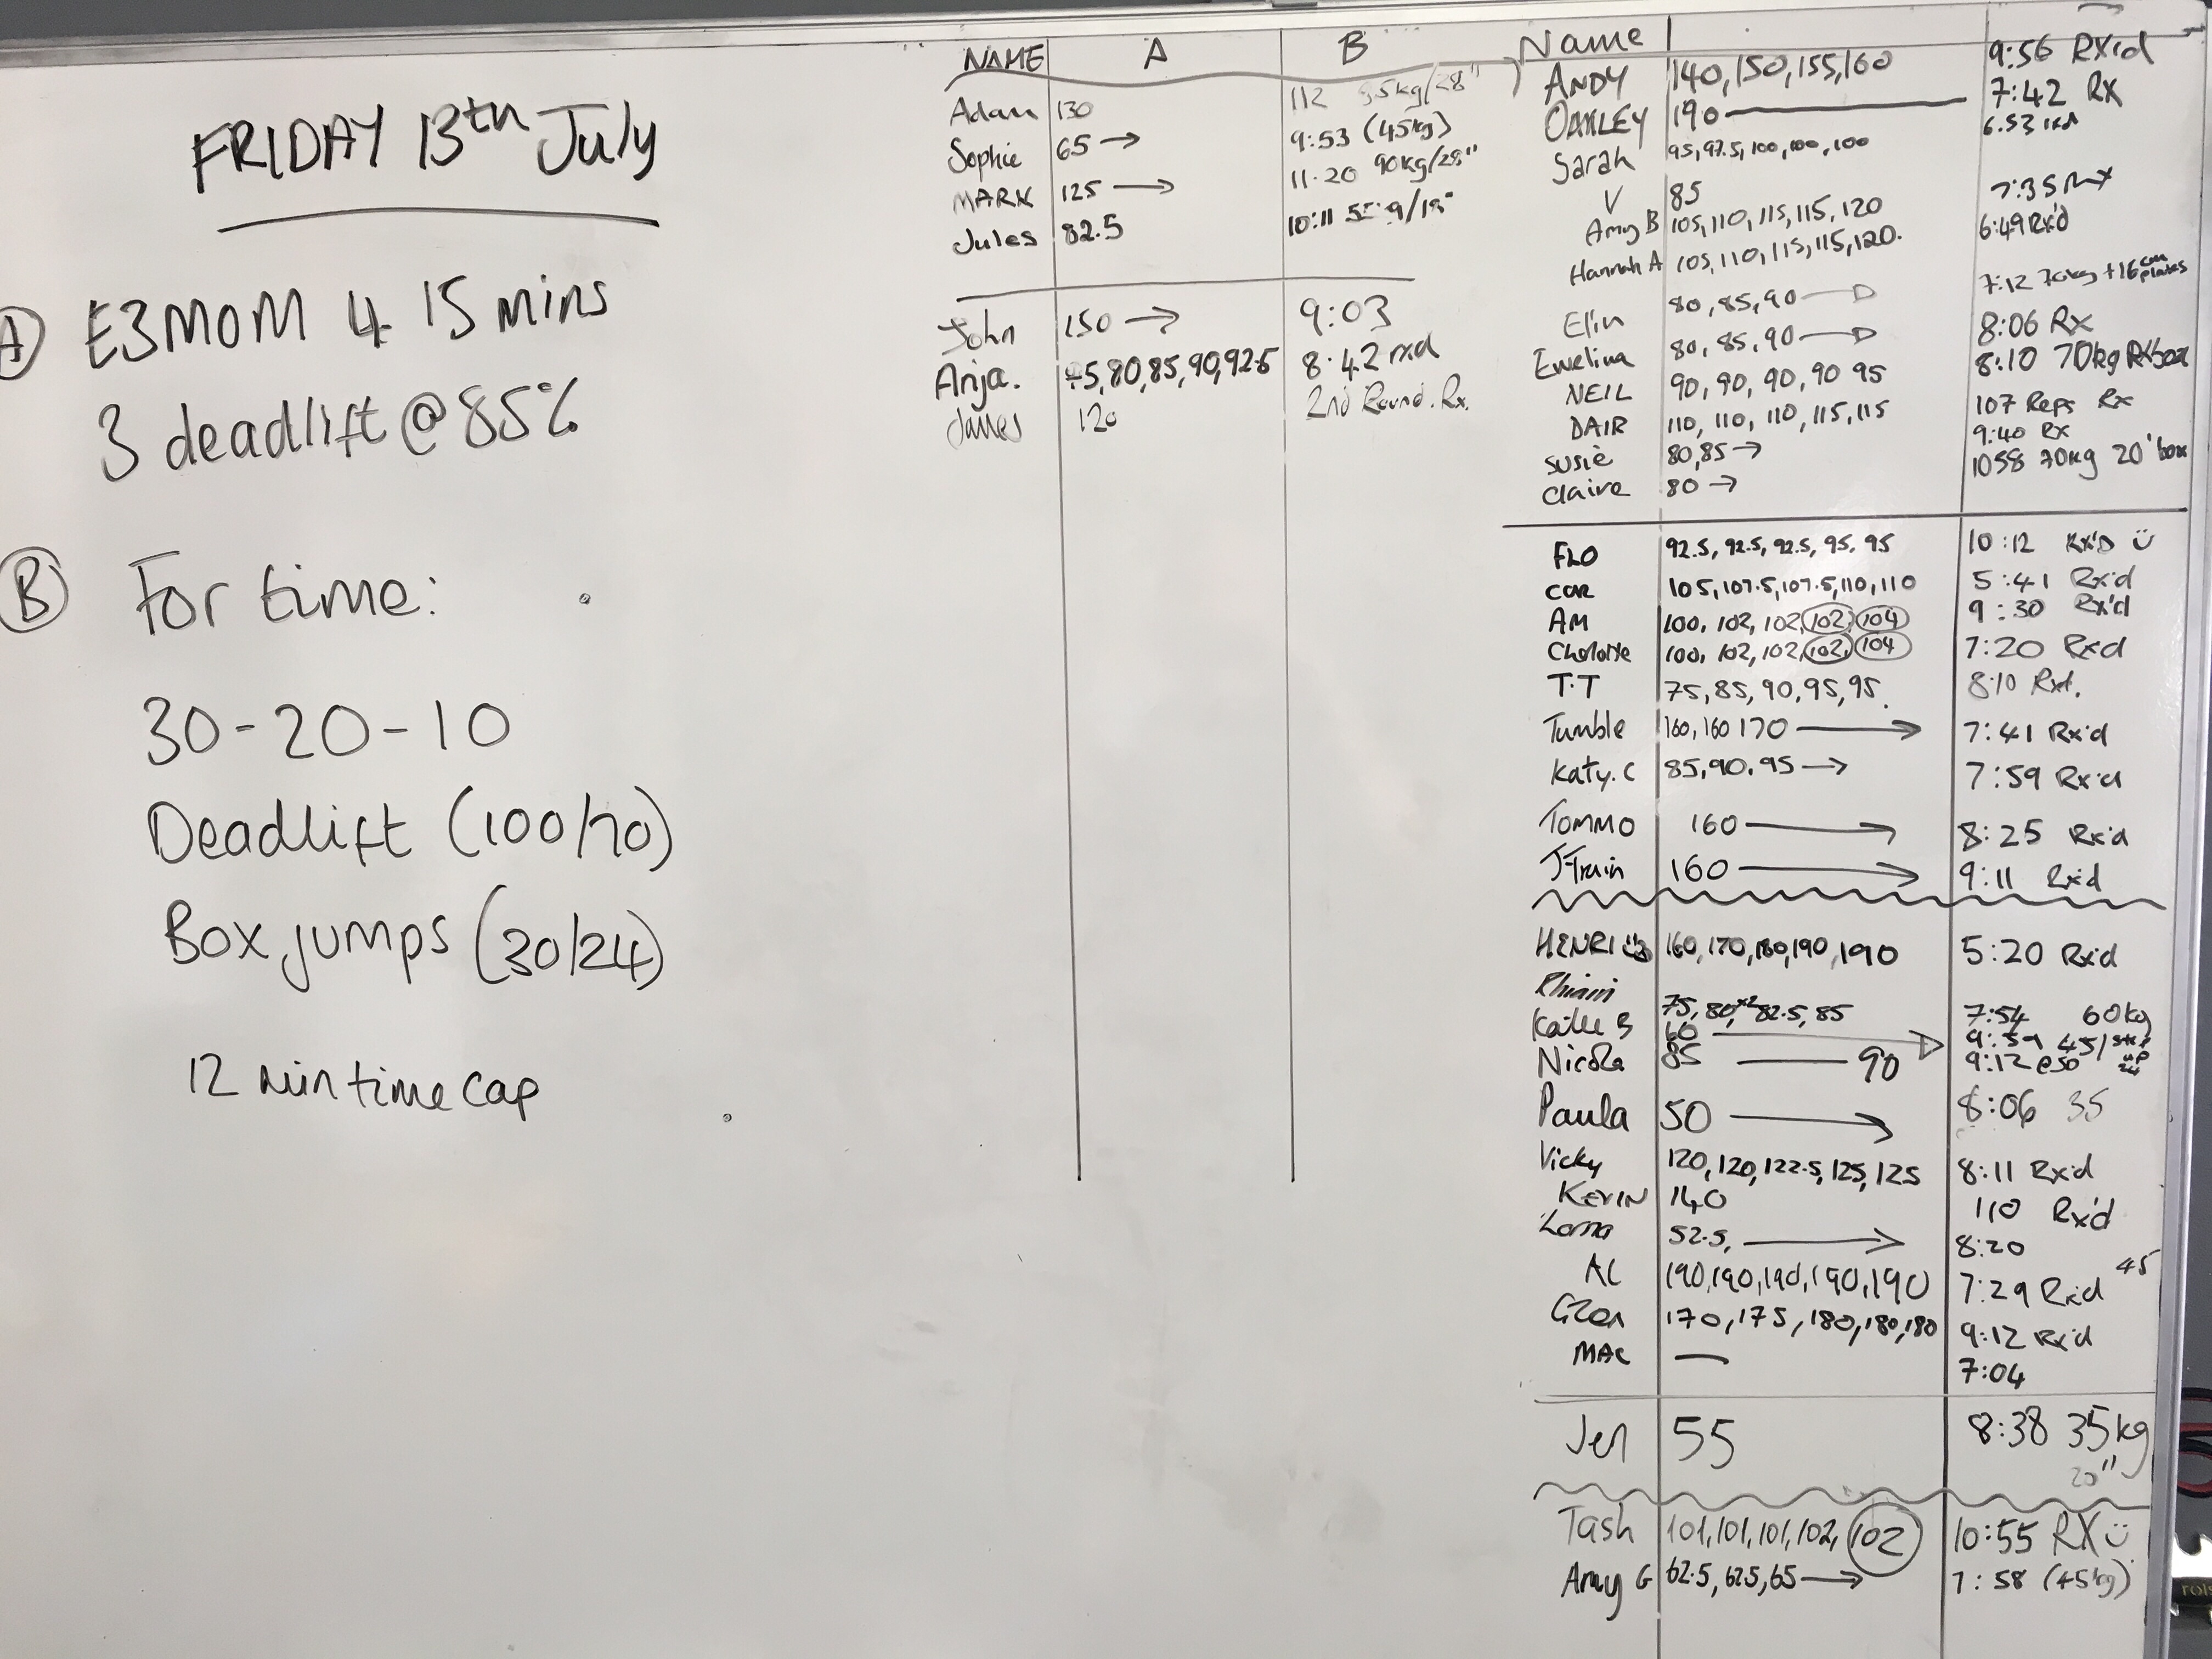 FRIDAY 13th July
A E3MOM 4 15 mins
3 deadlift @ 85%
B For time:
30-20-10
Deadlift (100/70)
Box jumps (30/24)
12 min time cap
NAME A B
Adam 130 112 kg/28"
Sophie 65 → 9:53 (45kg)
MARK 125 → 11.20 90kg/28"
Jules 82.5 10:11
John 150 → 9:03
Anja. 80, 85, 90, 92.5 8:42 rxd
James 120 2nd Round. Rx.
Name
ANDY 140, 150, 155, 160 9:56 RX'd
OAKLEY 190 7:42 RX
Sarah 95, 97.5, 100, 100, 100 6.53
V 85
Amy B 105, 110, 115, 115, 120 7:35
Hannah A 105, 110, 115, 115, 120. 6:49 Rx'd
Elin 80, 85, 90 → 7:12 70kg +16cm plates
Ewelina 80, 85, 90 → 8:06 Rx
NEIL 90, 90, 90, 90 95 8:10 70kg Rxbox
DAIR 110, 110, 110, 115, 115 107 Reps Rx
Susie 80, 85 → 9:40 Rx
Claire 80 → 1058 70kg 20' box
FLO 92.5, 92.5, 92.5, 95. 95 10:12 RX'D
COR 105, 107.5, 107.5, 110, 110 5:41 Rx'd
AM 100, 102, 102, 102, 104 9:30 Rx'd
100, 102, 102, 102, 104 7:20 Rxd
T.T 75, 85, 90, 95, 95. 8:10 Rxd.
Tumble 160, 160 170 → 7:41 Rx'd
Katy. C 85, 90, 95 → 7:59 Rx'd
Tommo 160 → 8:25 Rx'd
J-Train 160 → 9:11 Rx'd
HENRI 160, 170, 180, 190, 190 5:20 Rx'd
Rhian 75, 80, x2 82.5, 85 7:54 60kg
Katie B 60 → 9:59 45/step up
Nicola 85 — 90 9:12 @50
Paula 50 → 8:06 35
Vicky 120, 120, 122.5, 125, 125 8:11 Rx'd
KEVIN 140 110 Rx'd
Lorna 52.5, → 8:20 45
AL 190, 190, 190, 190, 190 7:29 Rxd
170, 175, 180, 180, 180 9:12 Rx'd
MAC — 7:04
Jen 55 8:38 35kg
20"
Tash 101, 101, 101, 102, 102 10:55 RX
Amy G 62.5, 62.5, 65 → 7:58 (45kg)